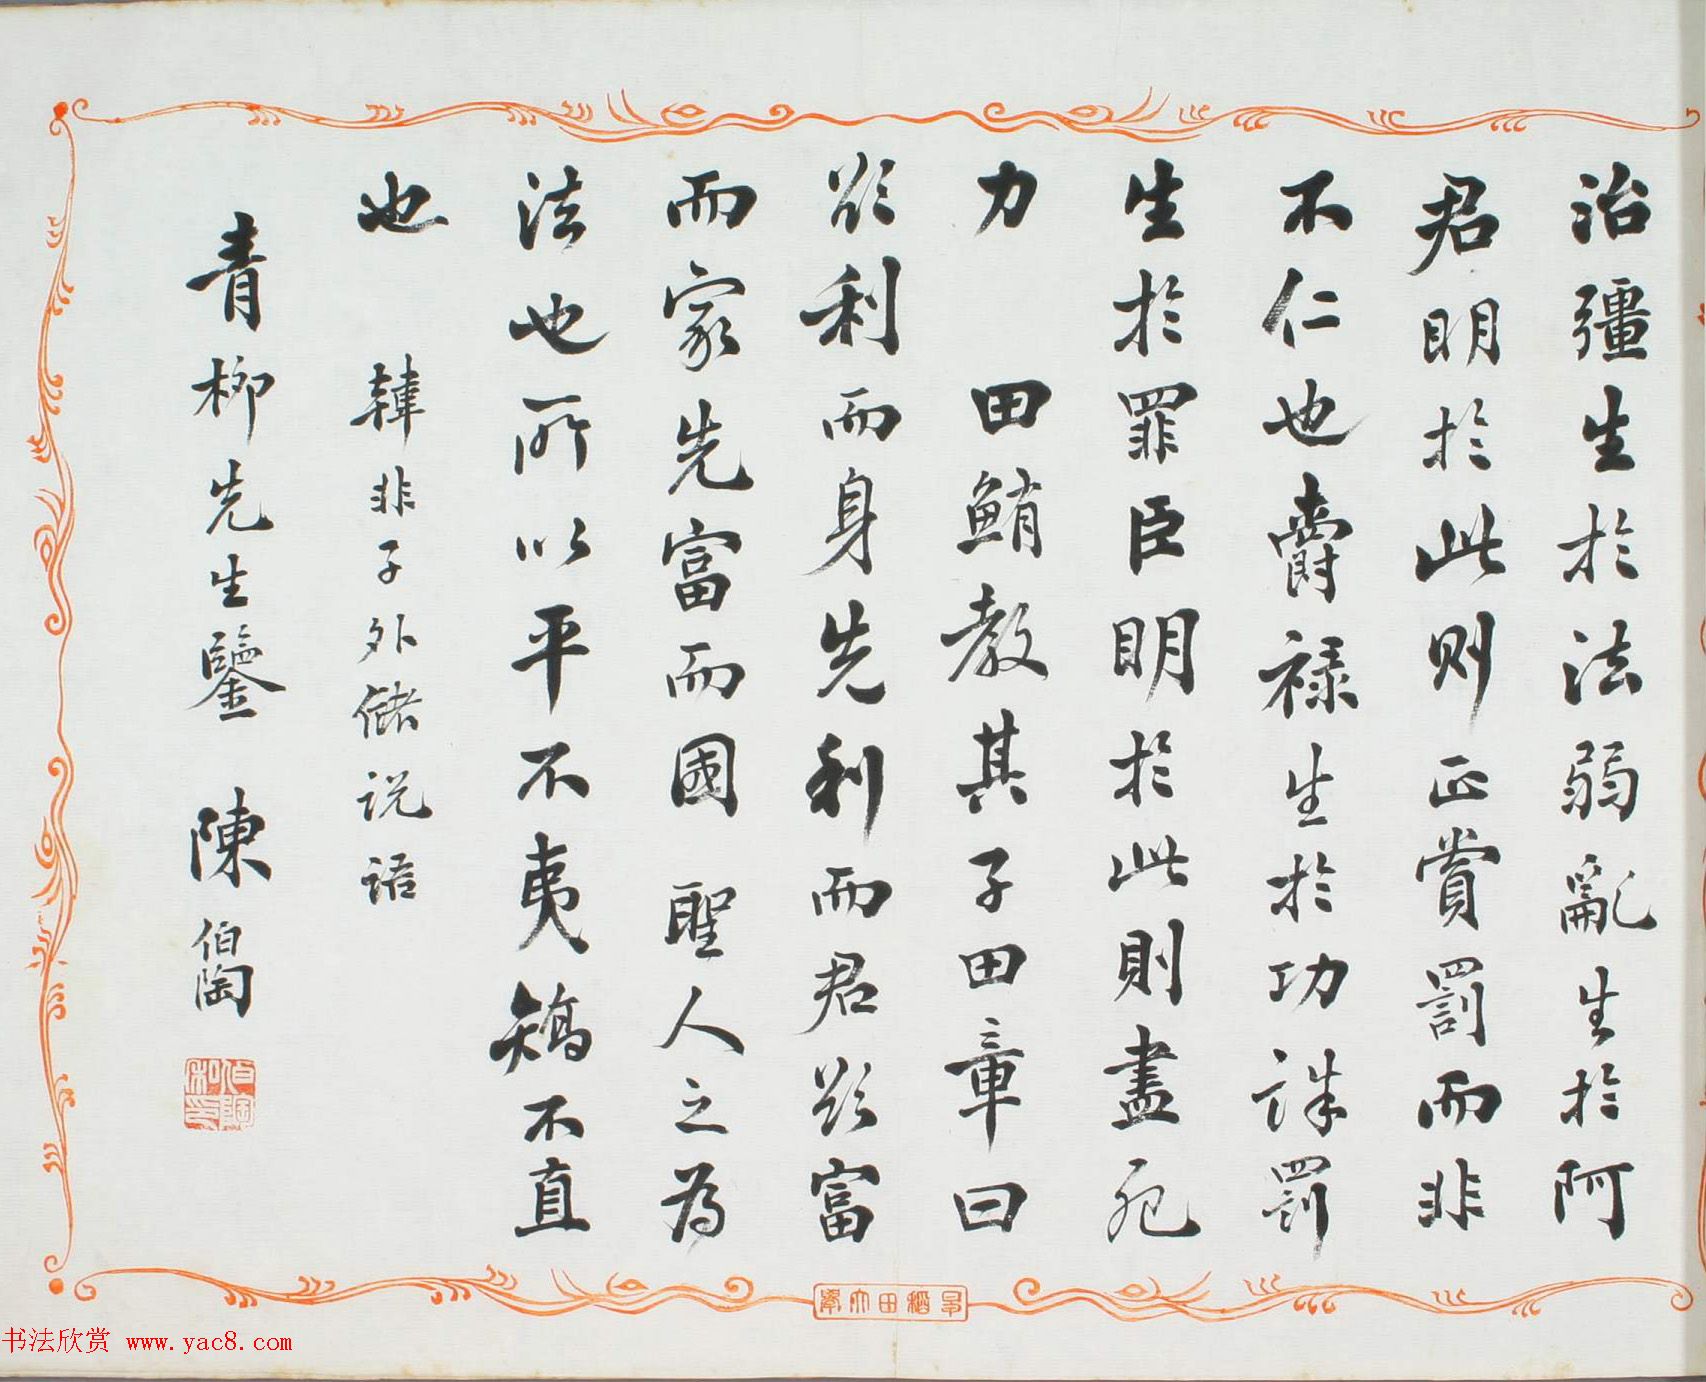 治彊生於法弱亂生於阿
君明於此則正賞罰而非
不仁也爵禄生於功誅罰
生於罪臣明於此則盡死
力 田鮪教其子田章曰
欲利而身先利而君欲富
而家先富而國 聖人之為
法也所以平不夷矯不直
也 韓非子外儲説語
青柳先生鑒 陳伯陶
伯陶私印
早稻田大學
书法欣赏 www.yac8.com